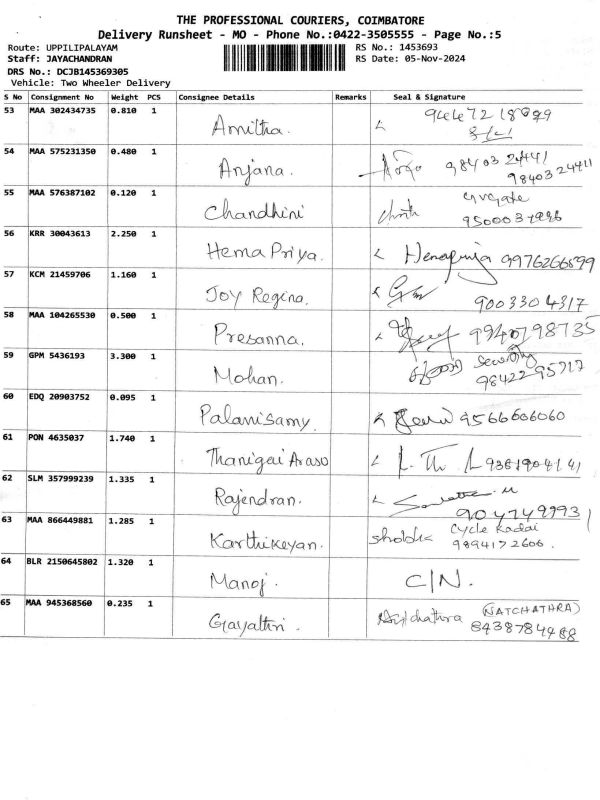 THE PROFESSIONAL COURIERS, COIMBATORE
Delivery Runsheet - MO - Phone No.:0422-3505555 - Page No.:5
Route: UPPILIPALAYAM RS No.: 1453693
Staff: JAYACHANDRAN RS Date: 05-Nov-2024
DRS No.: DCJB145369305
Vehicle: Two Wheeler Delivery
S No Consignment No Weight PCS Consignee Details Remarks Seal & Signature
53 MAA 302434735 0.810 1 Amitha.
54 MAA 575231350 0.480 1 Anjana. 98403 24441
98403 24411
55 MAA 576387102 0.120 1 Chandhini
56 KRR 30043613 2.250 1 Hema Priya. 9976266899
57 KCM 21459706 1.160 1 Joy Regina.
9003304317
58 MAA 104265530 0.500 1 Presanna. 9940798735
59 GPM 5436193 3.300 1 Mohan. Security
98422 95717
60 EDQ 20903752 0.095 1 Palanisamy. 9566606060
61 PON 4635037 1.740 1 Thanigai Araso 9381904141
62 SLM 357999239 1.335 1 Rajendran.
63 MAA 866449881 1.285 1 Karthikeyan. Cycle Kadai
9894172606.
64 BLR 2150645802 1.320 1 Manoj. C/N.
65 MAA 945368560 0.235 1 Gayathri. (NATCHATHRA)
8438784488